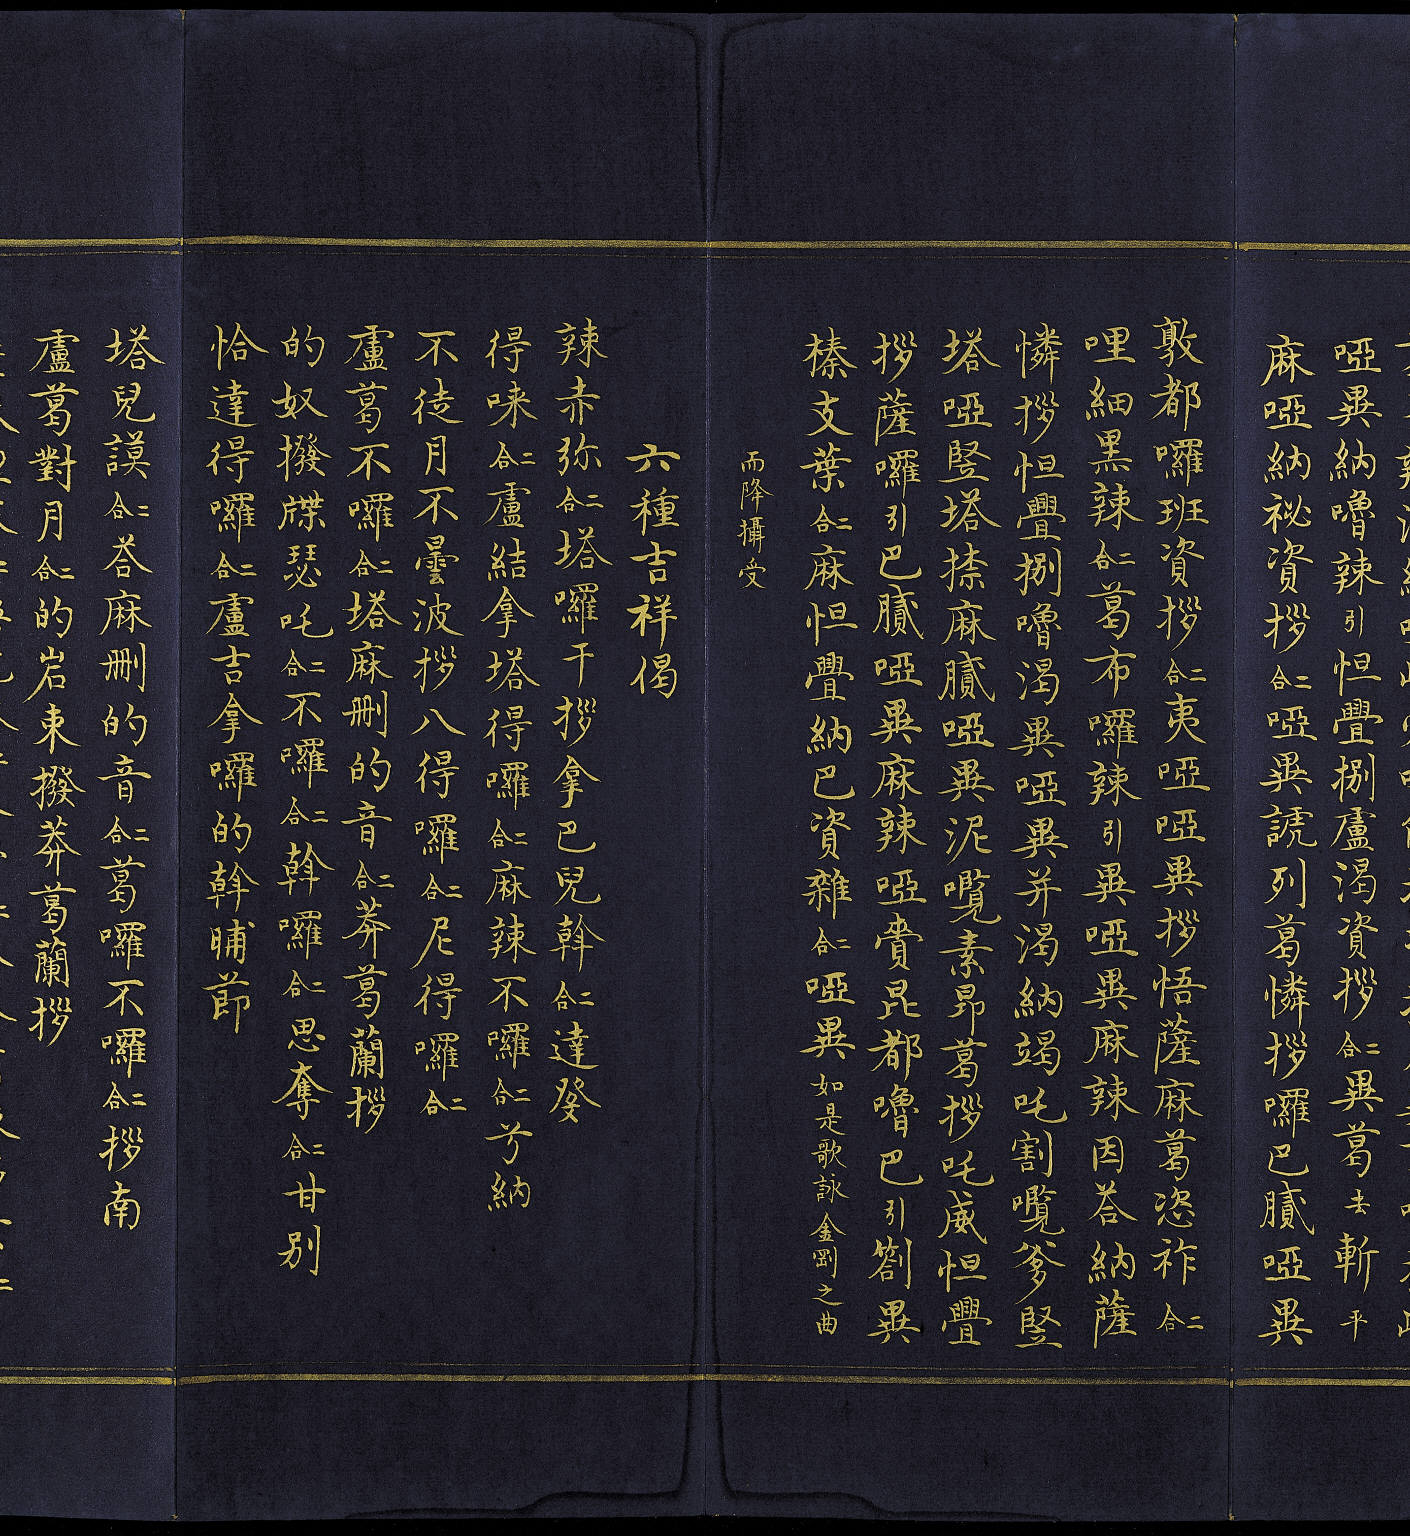 啞異納嚕辣引怛疊捌盧渴資拶二合異葛去斬平
麻啞納祕資拶二合啞異諕列葛憐拶囉巴膩啞異
敦都囉班資拶二合夷啞啞異拶悟薩麻葛恣祚二合
哩細黑辣二合葛布囉辣引異啞異麻辣因荅納薩
憐拶怛疊捌嚕渴異啞異并渴納竭吒割囕爹竪
塔啞竪塔捺麻膩啞異泥囕素昂葛拶吒威怛疊
拶薩囉引巴膩啞異麻辣啞賷昆都嚕巴引劄異
榛支葉二合麻怛疊納巴資雜二合啞異如是歌詠金剛之曲
而降攝受
六種吉祥偈
辣赤弥二合塔囉干拶拿巴兒斡二合達癹
得唻二合盧結拿塔得囉二合麻辣不囉二合兮納
不徒月不曇波拶八得囉二合尼得囉二合
盧葛不囉二合塔麻刪的音二合莽葛蘭拶
的奴撥牒瑟吒二合不囉二合斡囉二合思奪二合甘別
恰達得囉二合盧吉拿囉的斡晡節
塔兒謨二合荅麻刪的音二合葛囉不囉二合拶南
盧葛對月二合的岩東撥莽葛蘭拶